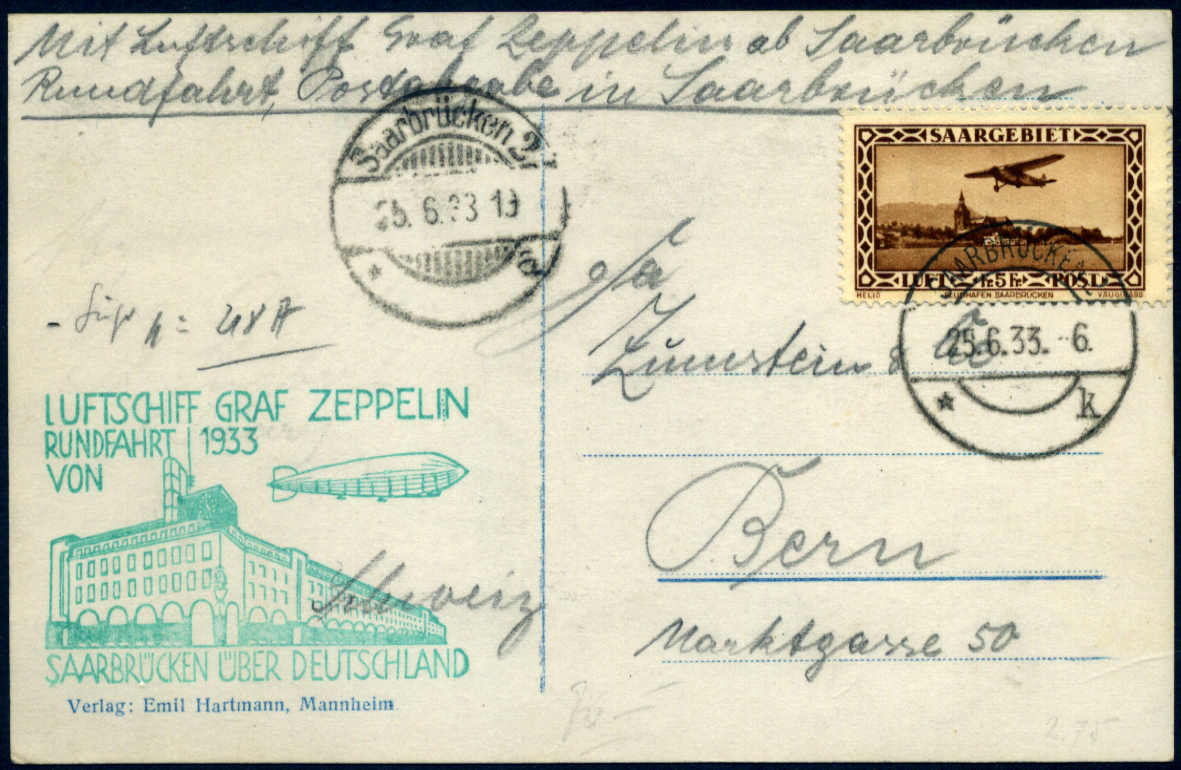 Mit Luftschiff Graf Zeppelin ab Saarbrücken
Rundfahrt, Postabgabe in Saarbrücken
Saarbrücken 2
25. 6. 33 19
* a
SAARGEBIET
LUFT 5 Fr. POST
HELIO FLUGHAFEN SAARBRÜCKEN VAUGIRARD
SAARBRÜCKEN
25.6.33. 6.
* k
Zumstein & Co
Bern
Marktgasse 50
Schweiz
LUFTSCHIFF GRAF ZEPPELIN
RUNDFAHRT 1933
VON
SAARBRÜCKEN ÜBER DEUTSCHLAND
Verlag: Emil Hartmann, Mannheim
2.75